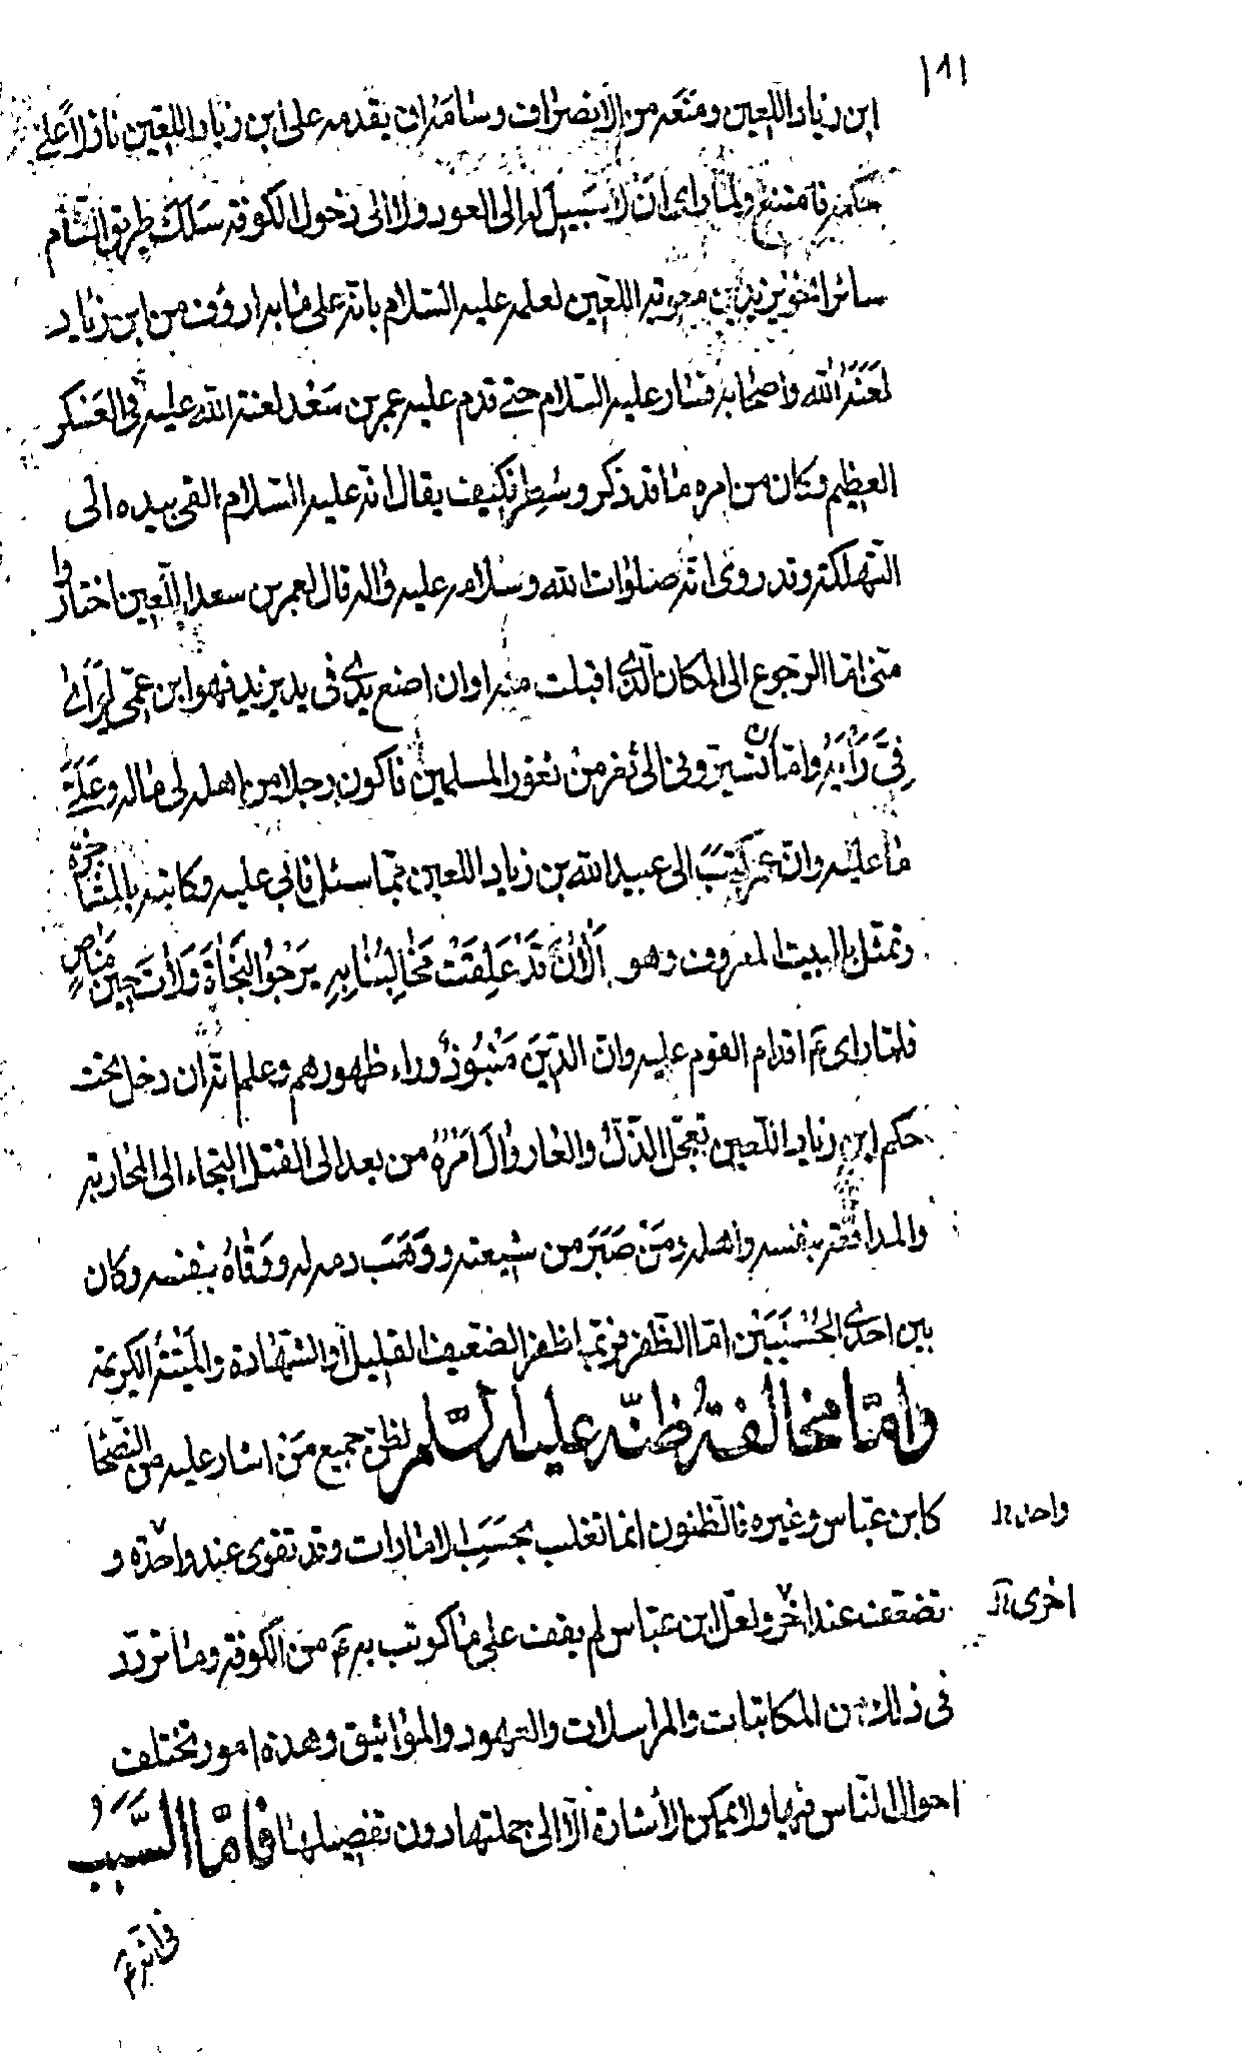 ١٨١
ابن زياد اللعين ومنعه من الانصراف وسامه ان يقدمه على ابن زياد اللعين نازلاً على
حكمه فامتنع ولما راى ان لا سبيل له الى العود ولا الى دخول الكوفة سلك طريق الشام
سائرا نحو يزيد بن معوية اللعين لعلمه عليه السلام بانه على ما به ارؤف من ابن زياد
لعنه الله واصحابه فسار عليه السلام حتى قدم عليه عمر بن سعد لعنة الله عليه في العسكر
العظيم وكان من امره ما قد ذكر وسطر فكيف يقال انه عليه السلام القى بيده الى
التهلكة وقد روى انه صلوات الله وسلامه عليه واله قال لعمر بن سعد اللعين اختاروا
منى اما الرجوع الى المكان الذى اقبلت منه او ان اضع يدى فى يد يزيد فهو ابن عمى ليرى
فىّ رأيه واما ان تسيرونى الى ثغر من ثغور المسلمين فاكون رجلا من اهله لى ماله وعلىّ
ما عليه وان عمر كتب الى عبيد الله بن زياد اللعين بما سئل فابى عليه وكاتبه بالمناجزة
وتمثل بالبيت المعروف وهو الان قد علقت مخالبنا به يرجوا النجاة ولات حين مناص
فلما راى ع اقدام القوم عليه وان الدين منبوذ وراء ظهورهم وعلم انه ان دخل تحت
حكم ابن زياد اللعين تعجل الذل والعار وال امره من بعد الى القتل التجاء الى المحاربة
والمدافعة بنفسه واهله ومن صبر من شيعته ووهب دمه له ووقاه بنفسه وكان
بين احدى الحسنيين اما الظفر فربما ظفر الضعيف القليل او الشهادة والميتة الكريمة
واما مخالفة ظنه عليه السلم لظن جميع من اشار عليه من النصحا
كابن عباس وغيره فالظنون انما تغلب بحسب الامارات وقد تقوى عند واحدة و
واحد ن
تضعف عند اخر ولعل ابن عباس لم يقف على ما كوتب به ع من الكوفة وما تردد
اخرى ن
فى ذلك من المكاتبات والمراسلات والعهود والمواثيق وهذه امور تختلف
احوال الناس فيها ولا يمكن الاشارة الا الى جملتها دون تفصيلها فاما السبب
فى انه ع